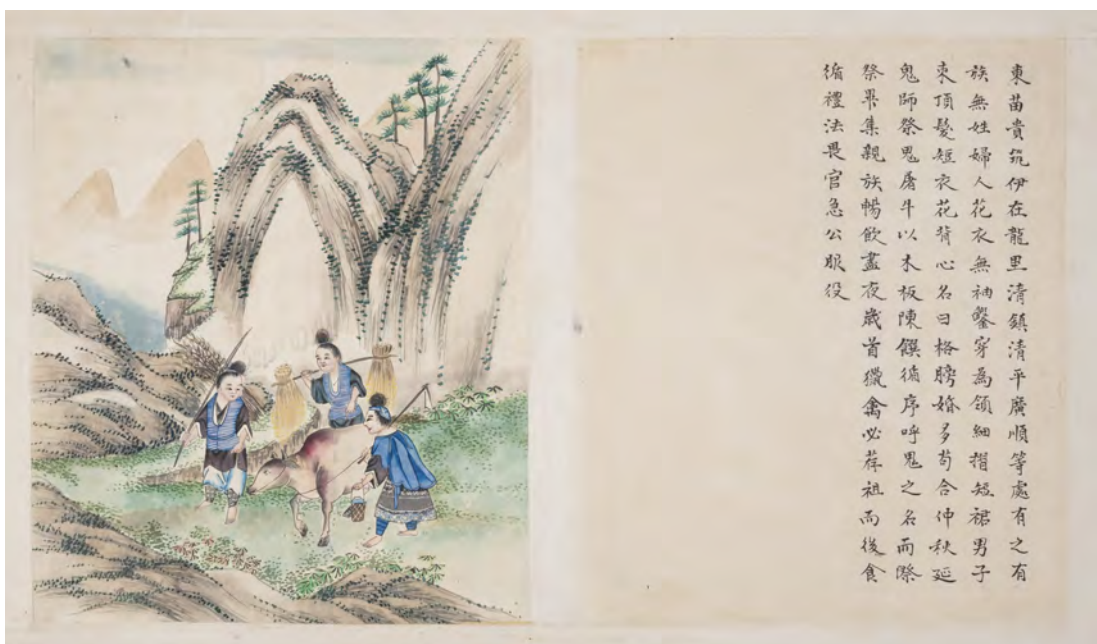 東苗貴筑伊在龍里清鎮清平廣順等處有之有
族無姓婦人花衣無袖鑿穿為領細摺短裙男子
束頂髮短衣花背心名曰格膀婚多苟合仲秋延
鬼師祭鬼屠牛以木板陳饌循序呼鬼之名而際
祭畢集親族暢飲盡夜歲首獵禽必荐祖而後食
循禮法畏官急公服役